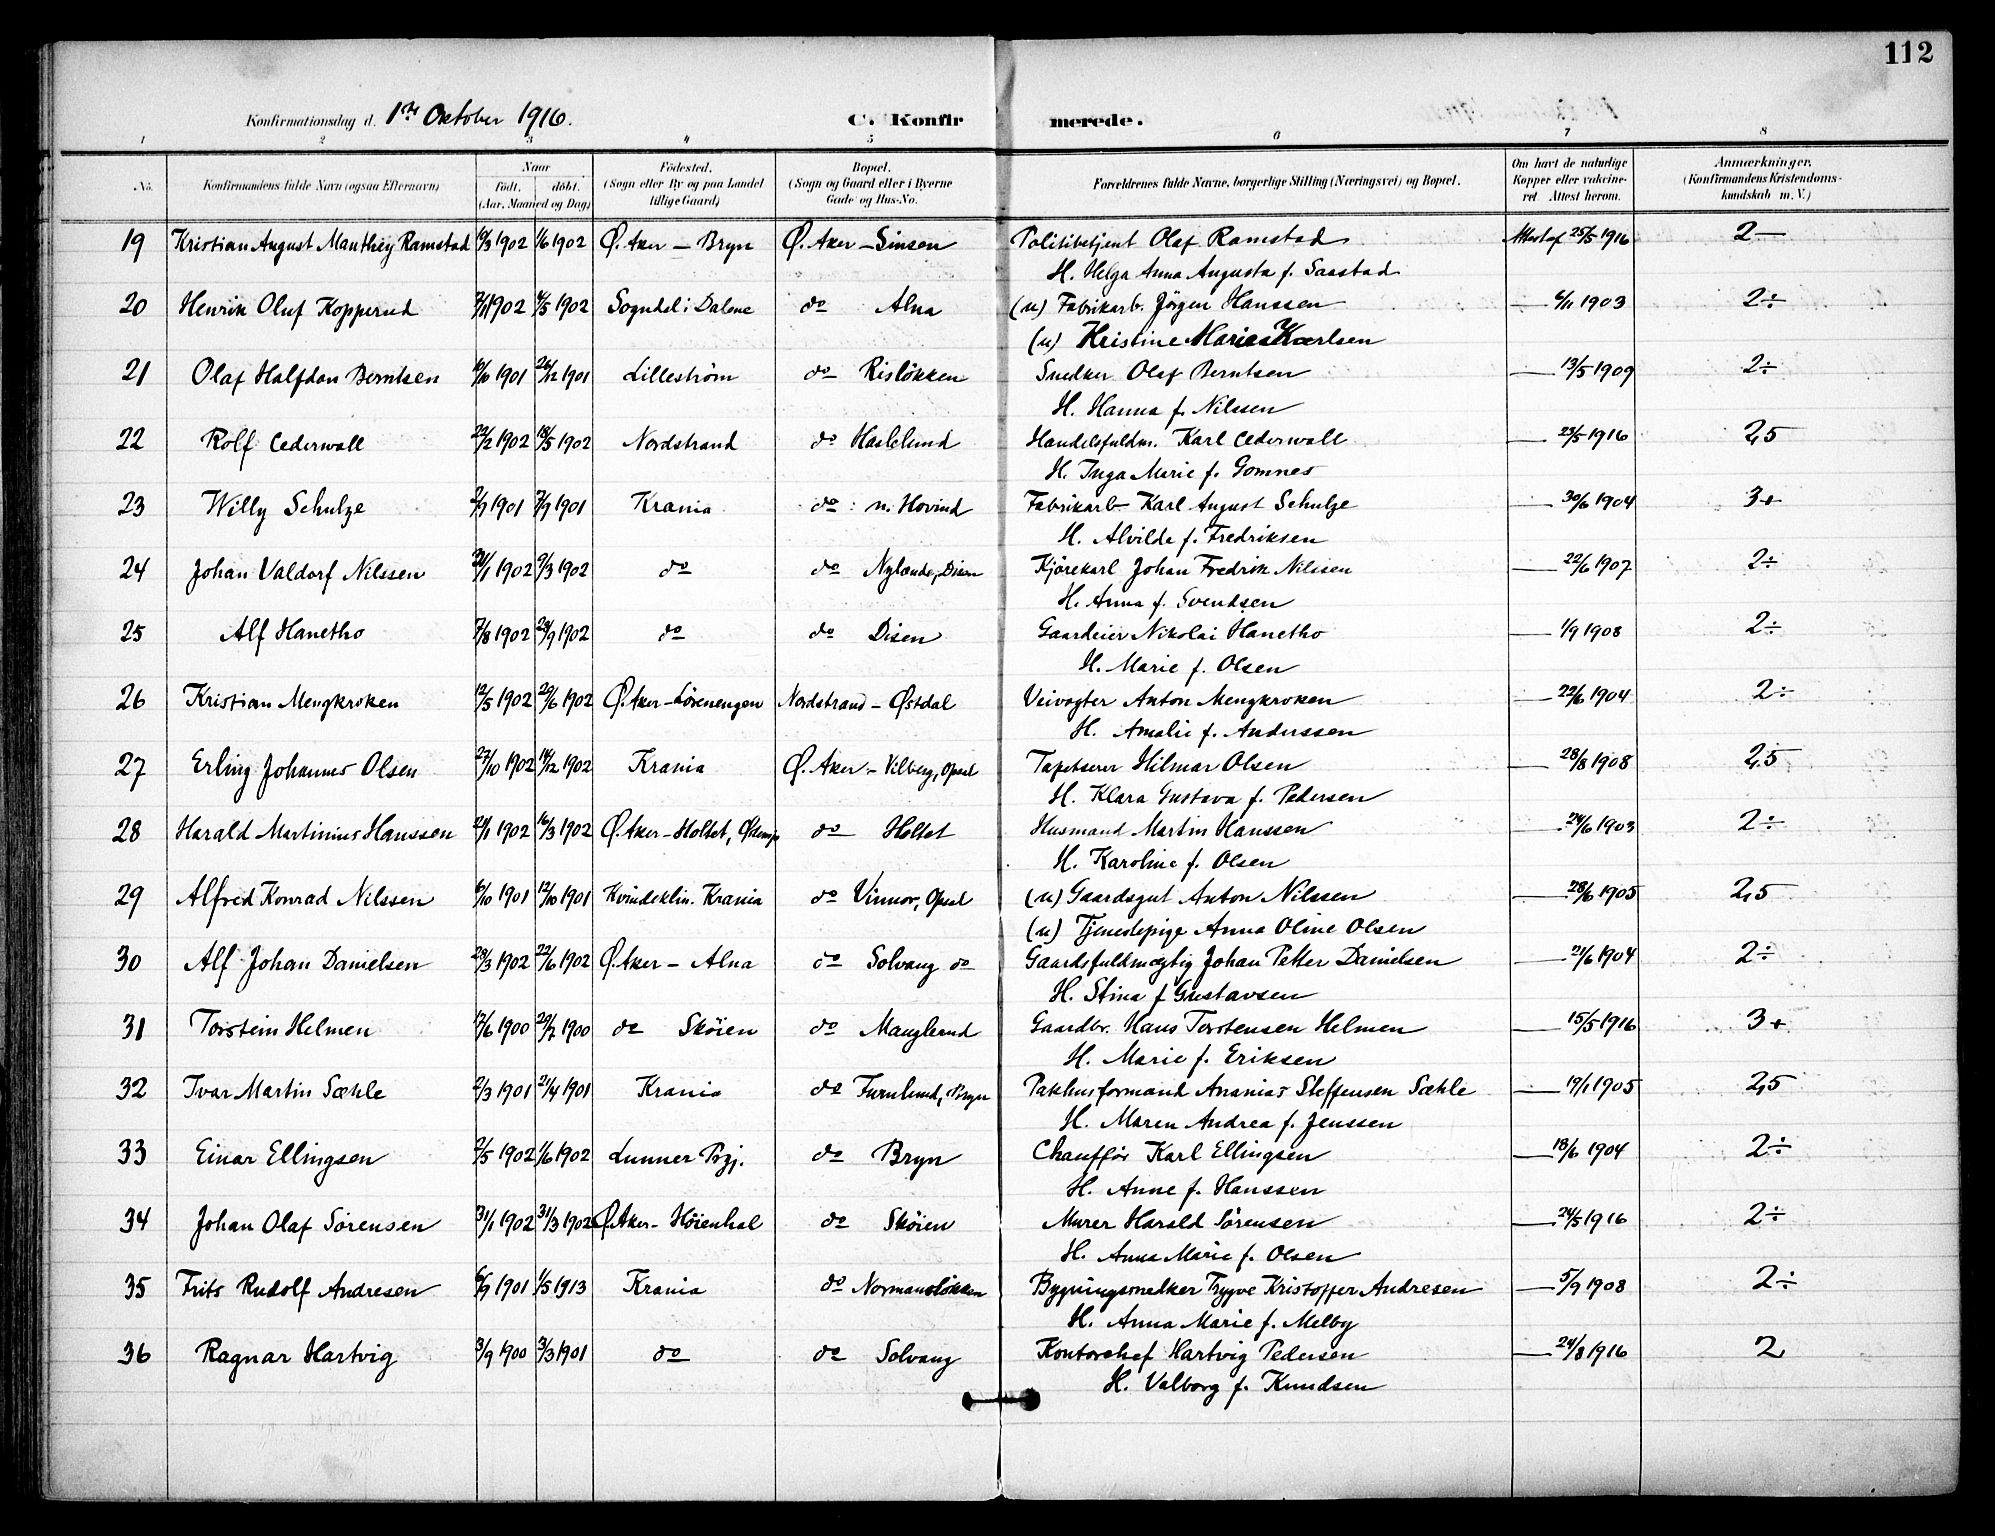 112
Konfirmationsdag d. 1ste Oktober 1916. C. Konfirmerede.
1 2 3 4 5 6 7 8
No. Konfirmandens fulde Navn (ogsaa Efternavn) Naar født. døbt. (Aar, Maaned og Dag) Fødested. (Sogn eller By og paa Landet tillige Gaard) Bopæl. (Sogn og Gaard eller i Byerne Gade og Hus-No. Forældrenes fulde Navne, borgerlige Stilling (Næringsvei) og Bopæl. Om havt de naturlige Kopper eller vakcineret Attest herom. Anmærkninger, (Konfirmandens Kristendomskundskab m. V.)
19 Kristian August Manthey Ramstad 19/3 1902 1/6 1902 Ø. Aker – Bryn Ø. Aker – Sinsen Politibetjent Olaf Ramstad Attest af 25/5 1916 2 –
H. Helga Anna Augusta f. Saastad
20 Henrik Oluf Kopperud 1902 4/5 1902 Sogndal i Dalene do Alna (u) Fabrikarb. Jørgen Hanssen — 6/11 1903 2 ÷
(u) Kristine Marie Karlsen
21 Olaf Halfdan Berntsen 16/10 1901 26/12 1901 Lillestrøm do Risløkken Snedker Olaf Berntsen — 13/5 1909 2 ÷
H. Hanna f. Nilssen
22 Rolf Cederwall 22/2 1902 18/5 1902 Nordstrand do Haslelund Handelsfuldm. Karl Cederwall — 23/5 1916 2,5
H. Inga Marie f. Gomnes
23 Willy Schulze 2/7 1901 7/9 1901 Krania do n. Hovind Fabrikarb Karl August Schulze — 30/6 1904 3+
H. Alvilde f. Fredriksen
24 Johan Valdorf Nilssen 1902 9/3 1902 do do Nylænde, Disen Kjørekarl Johan Fredrik Nilssen — 22/6 1907 2 ÷
H. Anna f. Svendsen
25 Alf Hanetho 7/8 1902 28/9 1902 do do Disen Gaardeier Nikolai Hanetho — 1/9 1908 2 ÷
H. Marie f. Olsen
26 Kristian Mengkroken 12/5 1902 29/6 1902 Ø. Aker – Lørenengen Nordstrand – Østdal Veivogter Anton Mengkroken — 22/6 1904 2 ÷
H. Amalie f. Anderssen
27 Erling Johannes Olsen 27/10 1902 14/12 1902 Krania Ø. Aker – Vilberg, Opsal Tapetserer Hilmar Olsen — 28/8 1908 2,5
H. Klara Gustava f. Pedersen
28 Harald Martinius Hanssen 24/1 1902 16/3 1902 Ø. Aker – Holtet, do Holtet Husmand Martin Hanssen — 24/6 1903 2 ÷
H. Karoline f. Olsen
29 Alfred Konrad Nilssen 6/10 1901 12/10 1901 Kvindeklin. Krania do Vinnor, Opsal (u) Gaardsgut Anton Nilssen — 28/6 1905 2,5
(u) Tjenestepige Anna Oline Olsen
30 Alf Johan Danielsen 28/3 1902 22/6 1902 Ø. Aker – Alna do Solvang do Gaardsfuldmægtig Johan Petter Danielsen — 21/6 1904 2 ÷
H. Stina f Gustavsen
31 Torstein Helmen 12/6 1900 29/7 1900 do Skøien do Manglerud Gaardbr. Hans Torstensen Helmen — 15/5 1916 3 +
H. Marie f. Eriksen
32 Ivar Martin Sæhle 2/3 1901 21/4 1901 Krania do Furulund, Bryn Pakhusformand Ananias Steffensen Sæhle — 19/1 1905 2,5
H. Maren Andrea f. Jenssen
33 Einar Ellingsen 2/5 1902 1/6 1902 Lunner Prgj. do Bryn Chauffør Karl Ellingsen — 18/6 1904 2 ÷
H. Anne f. Hanssen
34 Johan Olaf Sørensen 3/1 1902 31/3 1902 Ø. Aker – Høienhal do Skøien Murer Harald Sørensen — 24/5 1916 2 ÷
H. Anna Marie f. Olsen
35 Frits Rudolf Andresen 6/9 1901 1/5 1913 Krania do Normansløkken Bygningssnedker Trygve Kristoffer Andresen — 5/9 1908 2 ÷
H. Anna Marie f. Melby
36 Ragnar Hartvig 3/9 1900 3/3 1901 do do Solvang Kontorchef Hartvig Pedersen — 24/8 1916 2
H. Valborg f. Knudsen